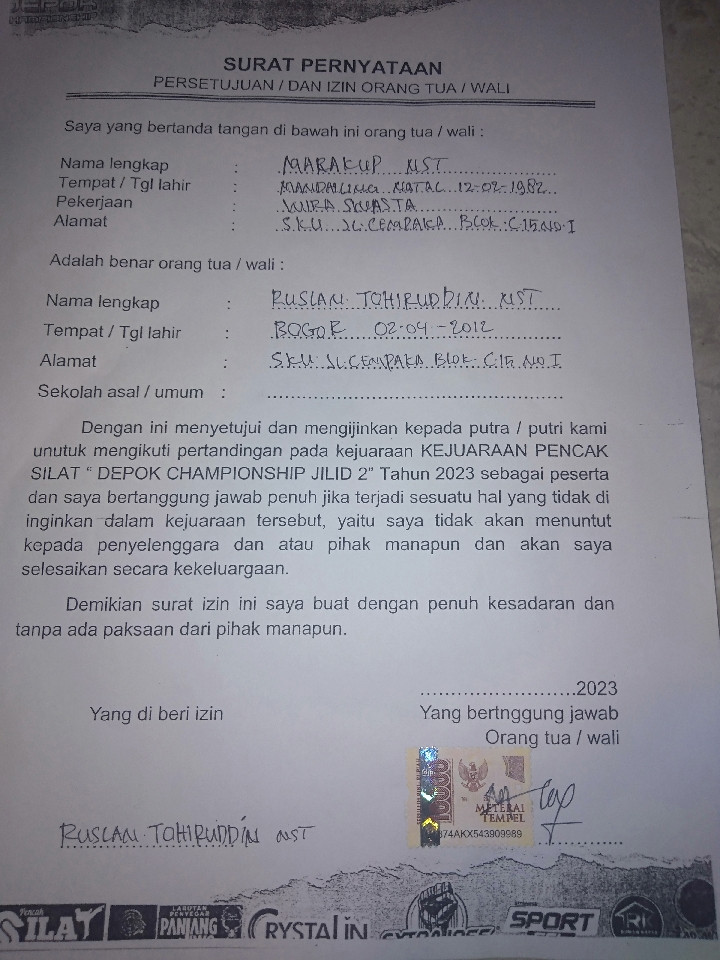 DEPOK
SURAT PERNYATAAN
PERSETUJUAN / DAN IZIN ORANG TUA / WALI
Saya yang bertanda tangan di bawah ini orang tua / wali :
Nama lengkap : MARAKUP NST
Tempat / Tgl lahir : MANDAILING NATAL 12-02-1982
Pekerjaan : WIRA SWASTA
Alamat : SKU JL.CEMPAKA BLOK.C15.NO.I
Adalah benar orang tua / wali :
Nama lengkap : RUSLAN TOHIRUDDIN NST
Tempat / Tgl lahir : BOGOR 02-04-2012
Alamat : SKU JL.CEMPAKA BLOK.C15.NO I
Sekolah asal / umum : ..........................
Dengan ini menyetujui dan mengijinkan kepada putra / putri kami
unutuk mengikuti pertandingan pada kejuaraan KEJUARAAN PENCAK
SILAT “ DEPOK CHAMPIONSHIP JILID 2” Tahun 2023 sebagai peserta
dan saya bertanggung jawab penuh jika terjadi sesuatu hal yang tidak di
inginkan dalam kejuaraan tersebut, yaitu saya tidak akan menuntut
kepada penyelenggara dan atau pihak manapun dan akan saya
selesaikan secara kekeluargaan.
Demikian surat izin ini saya buat dengan penuh kesadaran dan
tanpa ada paksaan dari pihak manapun.
..........................2023
Yang di beri izin Yang bertnggung jawab
Orang tua / wali
10000
METERAI
TEMPEL
874AKX543909989
RUSLAN TOHIRUDDIN NST
Pencak SILAT LARUTAN PENYEGAR PANJANG CRYSTALIN EXTRAJOSS SPORT TRK